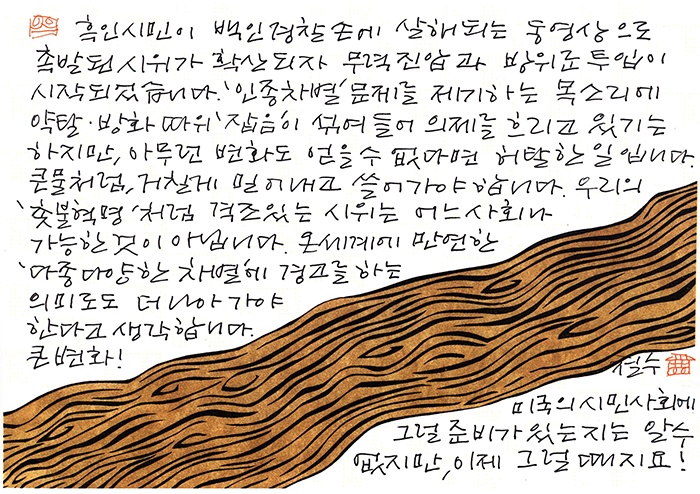 흑인시민이 백인경찰 손에 살해되는 동영상으로
촉발된 시위가 확산되자 무력진압과 방위군 투입이
시작되었습니다. '인종차별' 문제를 제기하는 목소리에
약탈·방화 따위 '잡음'이 섞여들어 의제를 흐리고 있기는
하지만, 아무런 변화도 얻을 수 없다면 허탈한 일입니다.
큰물처럼, 거칠게 밀어내고 쓸어가야 합니다. 우리의
'촛불혁명'처럼 격조있는 시위는 어느 사회나
가능한 것이 아닙니다. 온세계에 만연한
'다종다양한 차별'에 경고를 하는
의미로도 더 나아가야
한다고 생각합니다.
큰 변화!
철수
미국의 시민사회에
그럴 준비가 있는지는 알 수
없지만, 이제 그럴 때지요!